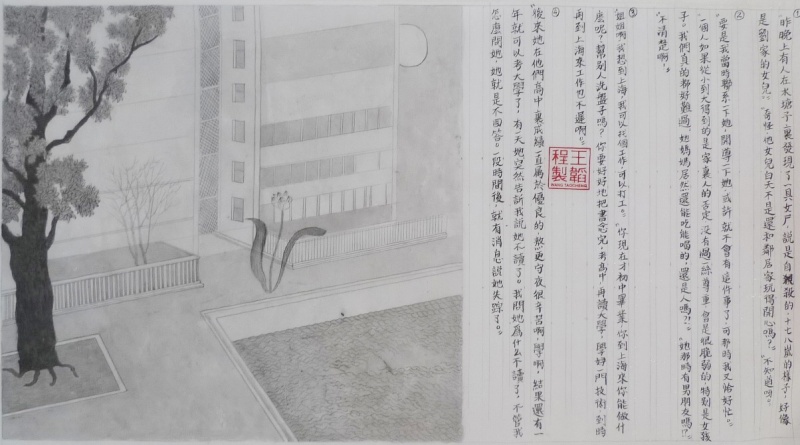 ①
昨晚上有人在水塘子裏發現了一具女尸，說是自殺的，十七八嵗的樣子，好像
是劉家的女兒。”“奇怪他女兒白天不是還和鄰居家玩得開心嗎？”“不知道呀。”
②
“要是我當時聯系一下她，開導一下她，或許就不會有這件事了，可那時我又恰好忙。”
“一個人如果從小到大得到的是家裏人的否定，沒有過一絲尊重，會是很脆弱的，特別是女孩
子。”“我們真的都好難過，她媽媽居然還能吃能喝的，還是人嗎？！”“她那時有男朋友嗎？”
“不清楚啊。”
③
“姐姐啊，我想到上海，我可以找個工作，可以打工。”“你現在才初中畢業，你到上海來你能做什
麽呢？幫別人洗盤子嗎？你要好好地把書念完，考高中，再讀大學，學好一門技術，到時
再到上海來工作也不遲啊。”
④
“後來她在他們高中裏成績一直屬於優良的，熬更守夜很辛苦啊，學啊，結果還有一
年就可以考大學了，有天她突然告訴我說她不讀了。我問她爲什么不讀了，不管我
怎麽問她，她就是不回答。一段時間後，就有消息說她失踪了。”
王韜程製
WANG TAOCHENG